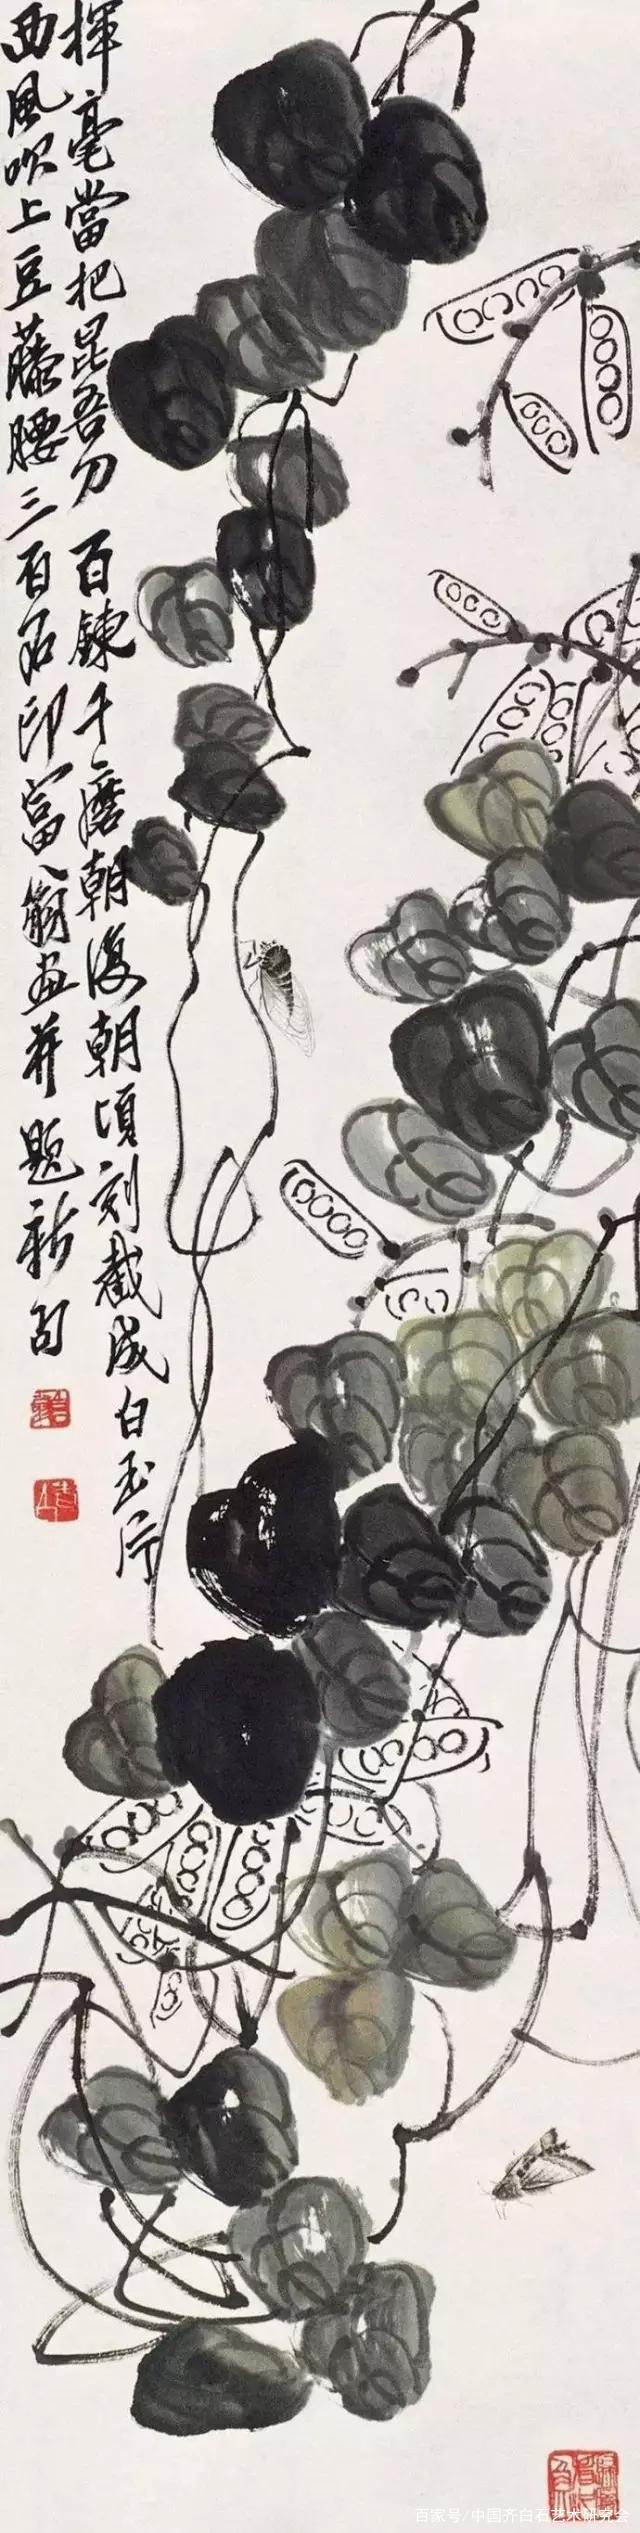 揮毫當把昆吾刀百鍊千磨朝復朝頃刻截成白玉片
西風吹上豆藤腰三百石印富翁画并題新句
百家号/中国齐白石艺术研究会